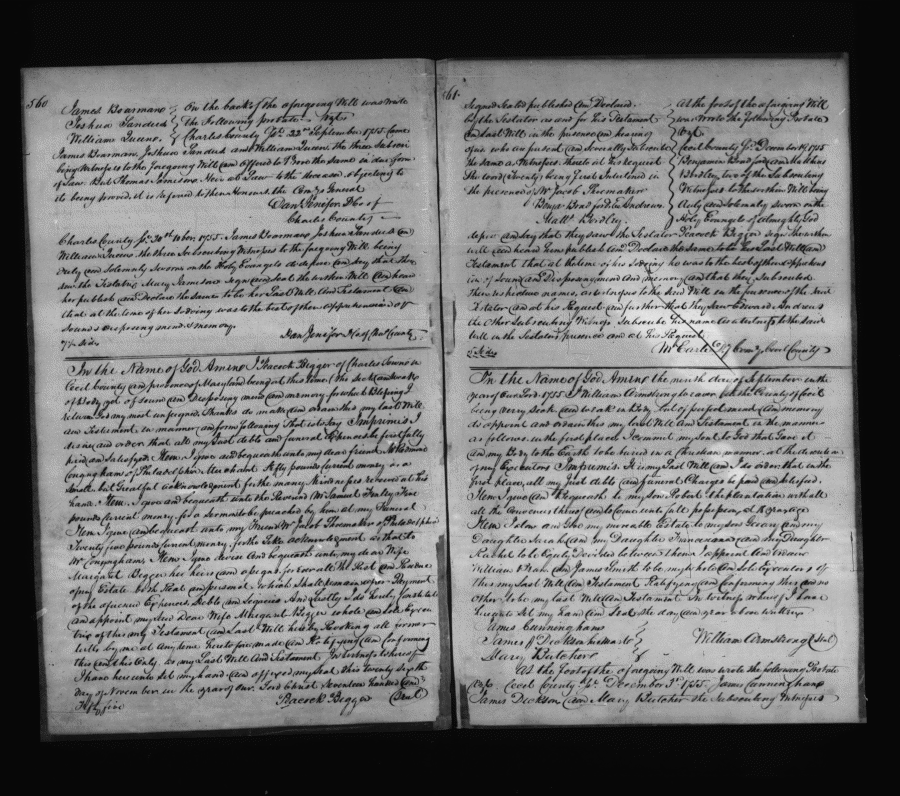 560
James Boarman
Joshua Sanders
William Queen
On the back of the aforegoing Will was wrote
the following probate. Vizt.
Charles County Ss. 22nd September 1755. Came
James Boarman, Joshua Sanders and William Queen the three Subscri
bing Witnesses to the foregoing Will and offered to Prove the same in due form
of Law. But Thomas Jameson Heir at Law to the deceased objecting to
its being proved, it is referred to their Honours the Comrys General
Dan Jenifer DCo of
Charles County
Charles County Ss. 30th 1755. James Boarman Joshua Sanders and
William Queen the three Subscribing Witnesses to the foregoing Will being
Duly and Solemnly Sworn on the Holy Evangels do depose and say that they
saw the Testatrix Mary Jameson sign and seal the within Will and heard
her publish and Declare the same to be her Last Will and Testament and
that at the time of her so doing was to the best of their apprehension of
Sound disposing mind & memory.
Dan Jenifer of County
In the Name of God Amen I Peacock Bigger of Charles Town in
Cecil County and province of Maryland being at this time sick and weak
of Body yet of sound and Disposing mind and memory for which Blessing I
return God my most unfeigned Thanks do make and ordain this my last Will
and Testament in manner and form following That is to say Imprimis I
desire and order that all my Just debts and funeral Expences be first fully
paid and Satisfied. Item I give and bequeath unto my dear friend
Conyngham of Philadelphia Merchant Fifty pounds current money as a
small but Greatful acknowledgement for the many kindnesses received at his
hand. Item. I give and bequeath unto the Reverend Mr Samuel Finley Five
pounds Current money for a Sermon to be preached by him at my Funeral
Item I give and bequeath unto my Friend Mr Jacob Shoemaker of Philadelphia
Twenty five pounds current money for the like acknowledgement as that to
Mr Conyngham. Item I give devise and bequeath unto my dear Wife
Margaret Bigger her heirs and assigns for ever all the Rest and Residue
of my Estate both Real and personal which shall remain after Payment
of the aforesaid Expences, Debts and Legacies And Lastly I do hereby constitute
and appoint my said Dear Wife Margaret Bigger whole and sole Execu
trix of this my Testament and Last Will hereby Revoking all former
wills by me at any time heretofore made and Ratifying and Confirming
this and this Only to my Last Will and Testament. In Witness whereof
I have hereunto set my hand and affixed my seal this Twenty
day of November in the year of our Lord Christ Seventeen hundred and
Fifty five
Peacock Bigger Seal
61
Signed Sealed published and Declared
by the Testator as and for his Testament
and Last Will in the presence and hearing
of us who are present and severally Subscribe
the same as Witnesses thereto at his request
the word Twenty being first Interlined in
the presence of Mr Jacob Shoemaker
Benja Bradford Edwd Andrews
Matt Bordley
At the foot of the aforegoing Will
was wrote the following Probate
Vizt.
Cecil County Ss. December 1755
Benjamin Bradford and Matthias
Bordley two of the Subscribing
Witnesses to the within Will being
duly and Solemnly sworn on the
Holy Evangels of Almighty God
depose and say that they saw the Testator Peacock Bigger sign the within
will and heard him publish and Declare the same to be his Last Will and
Testament that at the time of his so doing he was to the best of their apprehens
ion of sound and Disposing mind and memory and that they Subscribed
their respective names as witnesses to the said Will in the presence of the said
Testator and at his Request and further that they saw Edward Andrews
the other Subscribing Witness subscribe his name as a witness to the said
will in the Testators presence and at his Request
County
In the Name of God Amen the ninth day of September in the
year of our Lord 1755 I William Armstrong in the County of Cecil
being very Sick and weak in Body but of perfect mind and memory
do appoint and ordain this my last Will and Testament in the manner
as follows. in the first place I commit my Soul to God that Gave it
and my Body to the Earth to be buried in a Christian manner at the discretion
of my Executors Imprimis. It is my Last Will and I do order that in the
first place all my Just debts and funeral Charges be paid and satisfied.
Item I give and Bequeath to my son Robert the plantation with all
all the Conveniences thereof
Item I allow and the moveable Estate to my and my
Daughter Sarah and my Daughter and my Daughter
Rachel to be Equly Devided between them I appoint and ordain
William and James Smith to be my whole and Sole Executors of
this my Last Will and Testament Ratifying and Confirming this and no
other to be my last Will and Testament In Witness whereof I have
hereunto set my hand and Seal the day and year above written
James Cunningham
James Dickson
Mary Butcher
William Armstrong Seal
At the foot of the aforegoing Will was wrote the following Probate
Vizt. Cecil County Ss. December 3d 1755. James Cunningham
James Dickson and Mary Butcher the Subscribing Witnesses